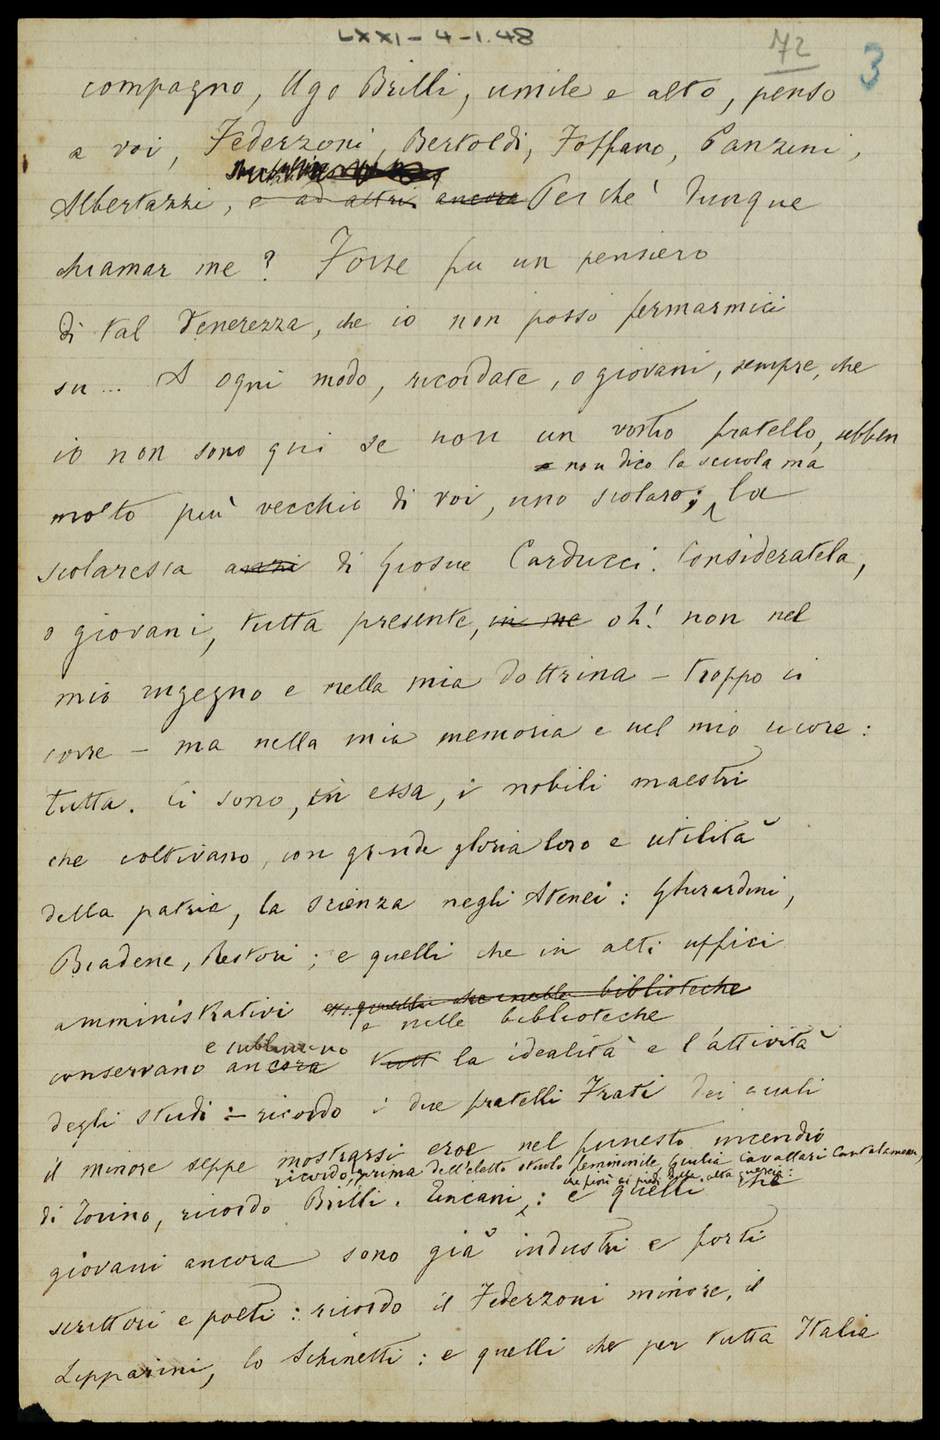 LXXI-4-1.48
72
3
compagno, Ugo Brilli, umile e alto, penso
a voi, Federzoni, Bertoldi, Foffano, Panzini,
Albertazzi, e ad altri ancora Perchè dunque
chiamar me? Forse fu un pensiero
di tal tenerezza, che io non posso fermarmici
su... A ogni modo, ricordate, o giovani, sempre, che
io non sono qui se non un vostro fratello, sebben
e non dico la scuola ma
molto più vecchio di voi, uno scolaro; la
scolaresca anzi di Giosue Carducci. Consideratela,
o giovani, tutta presente, in me oh! non nel
mio ingegno e nella mia dottrina - troppo ci
corre - ma nella mia memoria e nel mio cuore:
tutta. Ci sono, in essa, i nobili maestri
che coltivano, con grande gloria loro e utilità
della patria, la scienza negli Atenei: Gherardini,
Biadene, Restori; e quelli che in alti uffici
amministrativi e quelli che nelle biblioteche
e nelle biblioteche
e sublimano
conservano ancora tutt la idealità e l'attività
degli studi: - ricordo i due fratelli Frati dei quali
il minore seppe mostrarsi eroe nel funesto incendio
ricordo, prima dell'eletto stuolo femminile, Giulia Cavallari Cantalamessa,
che fiorì ai piedi della alta quercia:
di Torino, ricordo Brilli. Zincani; : e quelli che
giovani ancora sono già industri e forti
scrittori e poeti: ricordo il Federzoni minore, il
Lipparini, lo Schinetti: e quelli che per tutta Italia